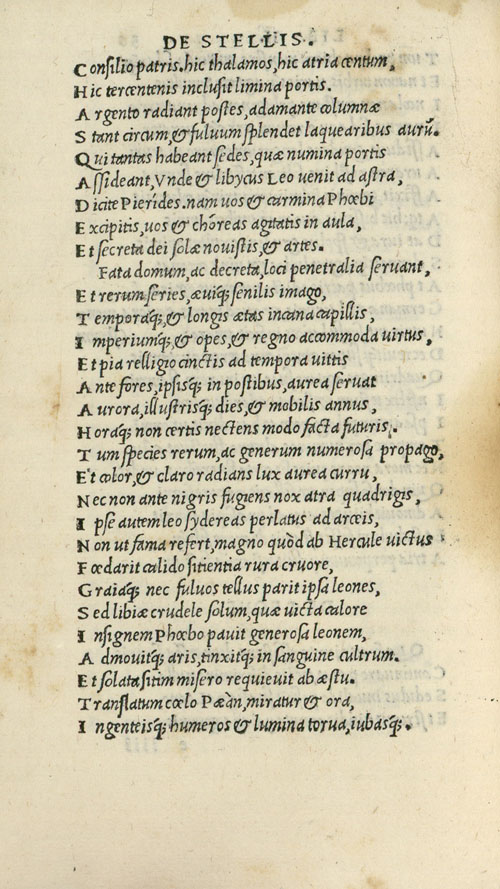 DE STELLIS.
Consilio patris. hic thalamos, hic atria centum,
Hic tercentenis inclusit limina portis.
Argento radiant postes, adamante columnæ
Stant circum, & fuluum splendet laquearibus aurū.
Qui tantas habeant sedes, quæ numina portis
Assideant, Vnde & libycus Leo uenit ad astra,
Dicite Pierides. nam uos & carmina Phœbi
Excipitis, uos & chóreas agitatis in aula,
Et secreta dei solæ nouistis, & artes.
Fata domum, ac decreta, loci penetralia seruant,
Et rerum series, æuiq; senilis imago,
Temporaq;, & longis ætas incana capillis,
Imperiumq;, & opes, & regno accommoda uirtus,
Et pia relligio cinctis ad tempora uittis
Ante fores, ipsisq; in postibus, aurea seruat
Aurora, illustrisq; dies, & mobilis annus,
Horaq; non certis nectens modo facta futuris.
Tum species rerum, ac generum numerosa propago,
Et color, & claro radians lux aurea curru,
Nec non ante nigris fugiens nox atra quadrigis,
Ipse autem leo sydereas perlatus ad arceis,
Non ut fama refert, magno quòd ab Hercule uictus
Fœdarit calido sitientia rura cruore,
Graiaq; nec fuluos tellus parit ipsa leones,
Sed libiæ crudele solum, quæ uicta calore
Insignem Phœbo pauit generosa leonem,
Admouitq; aris, tinxitq; in sanguine cultrum.
Et solata sitim misero requieuit ab æstu.
Translatum cœlo Pæàn, miratur & ora,
Ingenteisq; humeros & lumina torua, iubasq;.